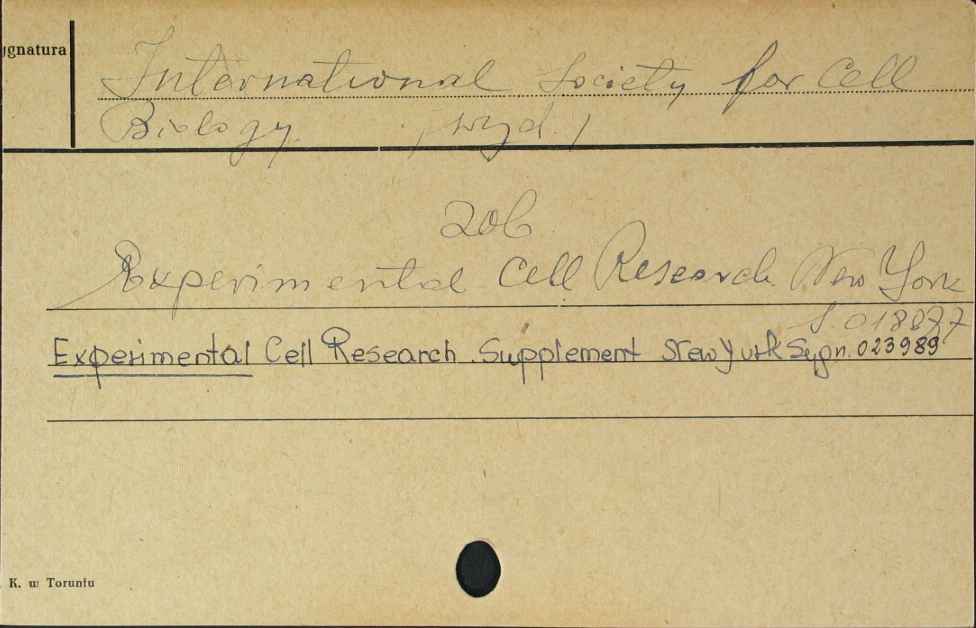 ygnatura
International Society for Cell
Biology. /wyd./
zob
Experimental Cell Research New York
S. 018877
Experimental Cell Research. Supplement New York Sygn. 023989
K. w Toruniu